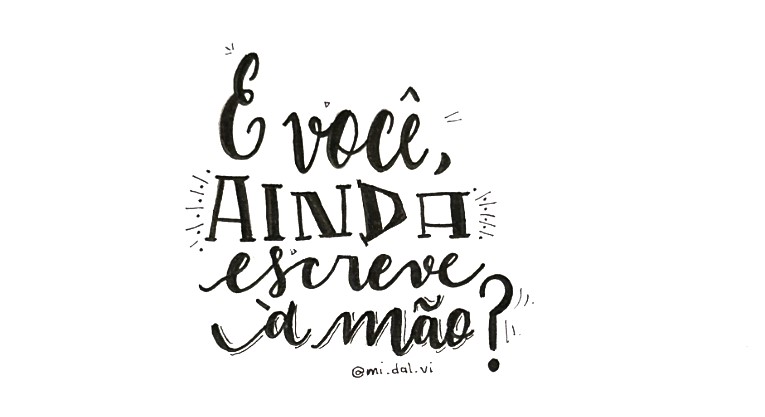 E você,
AINDA
escreve
à mão?
@mi.dal.vi